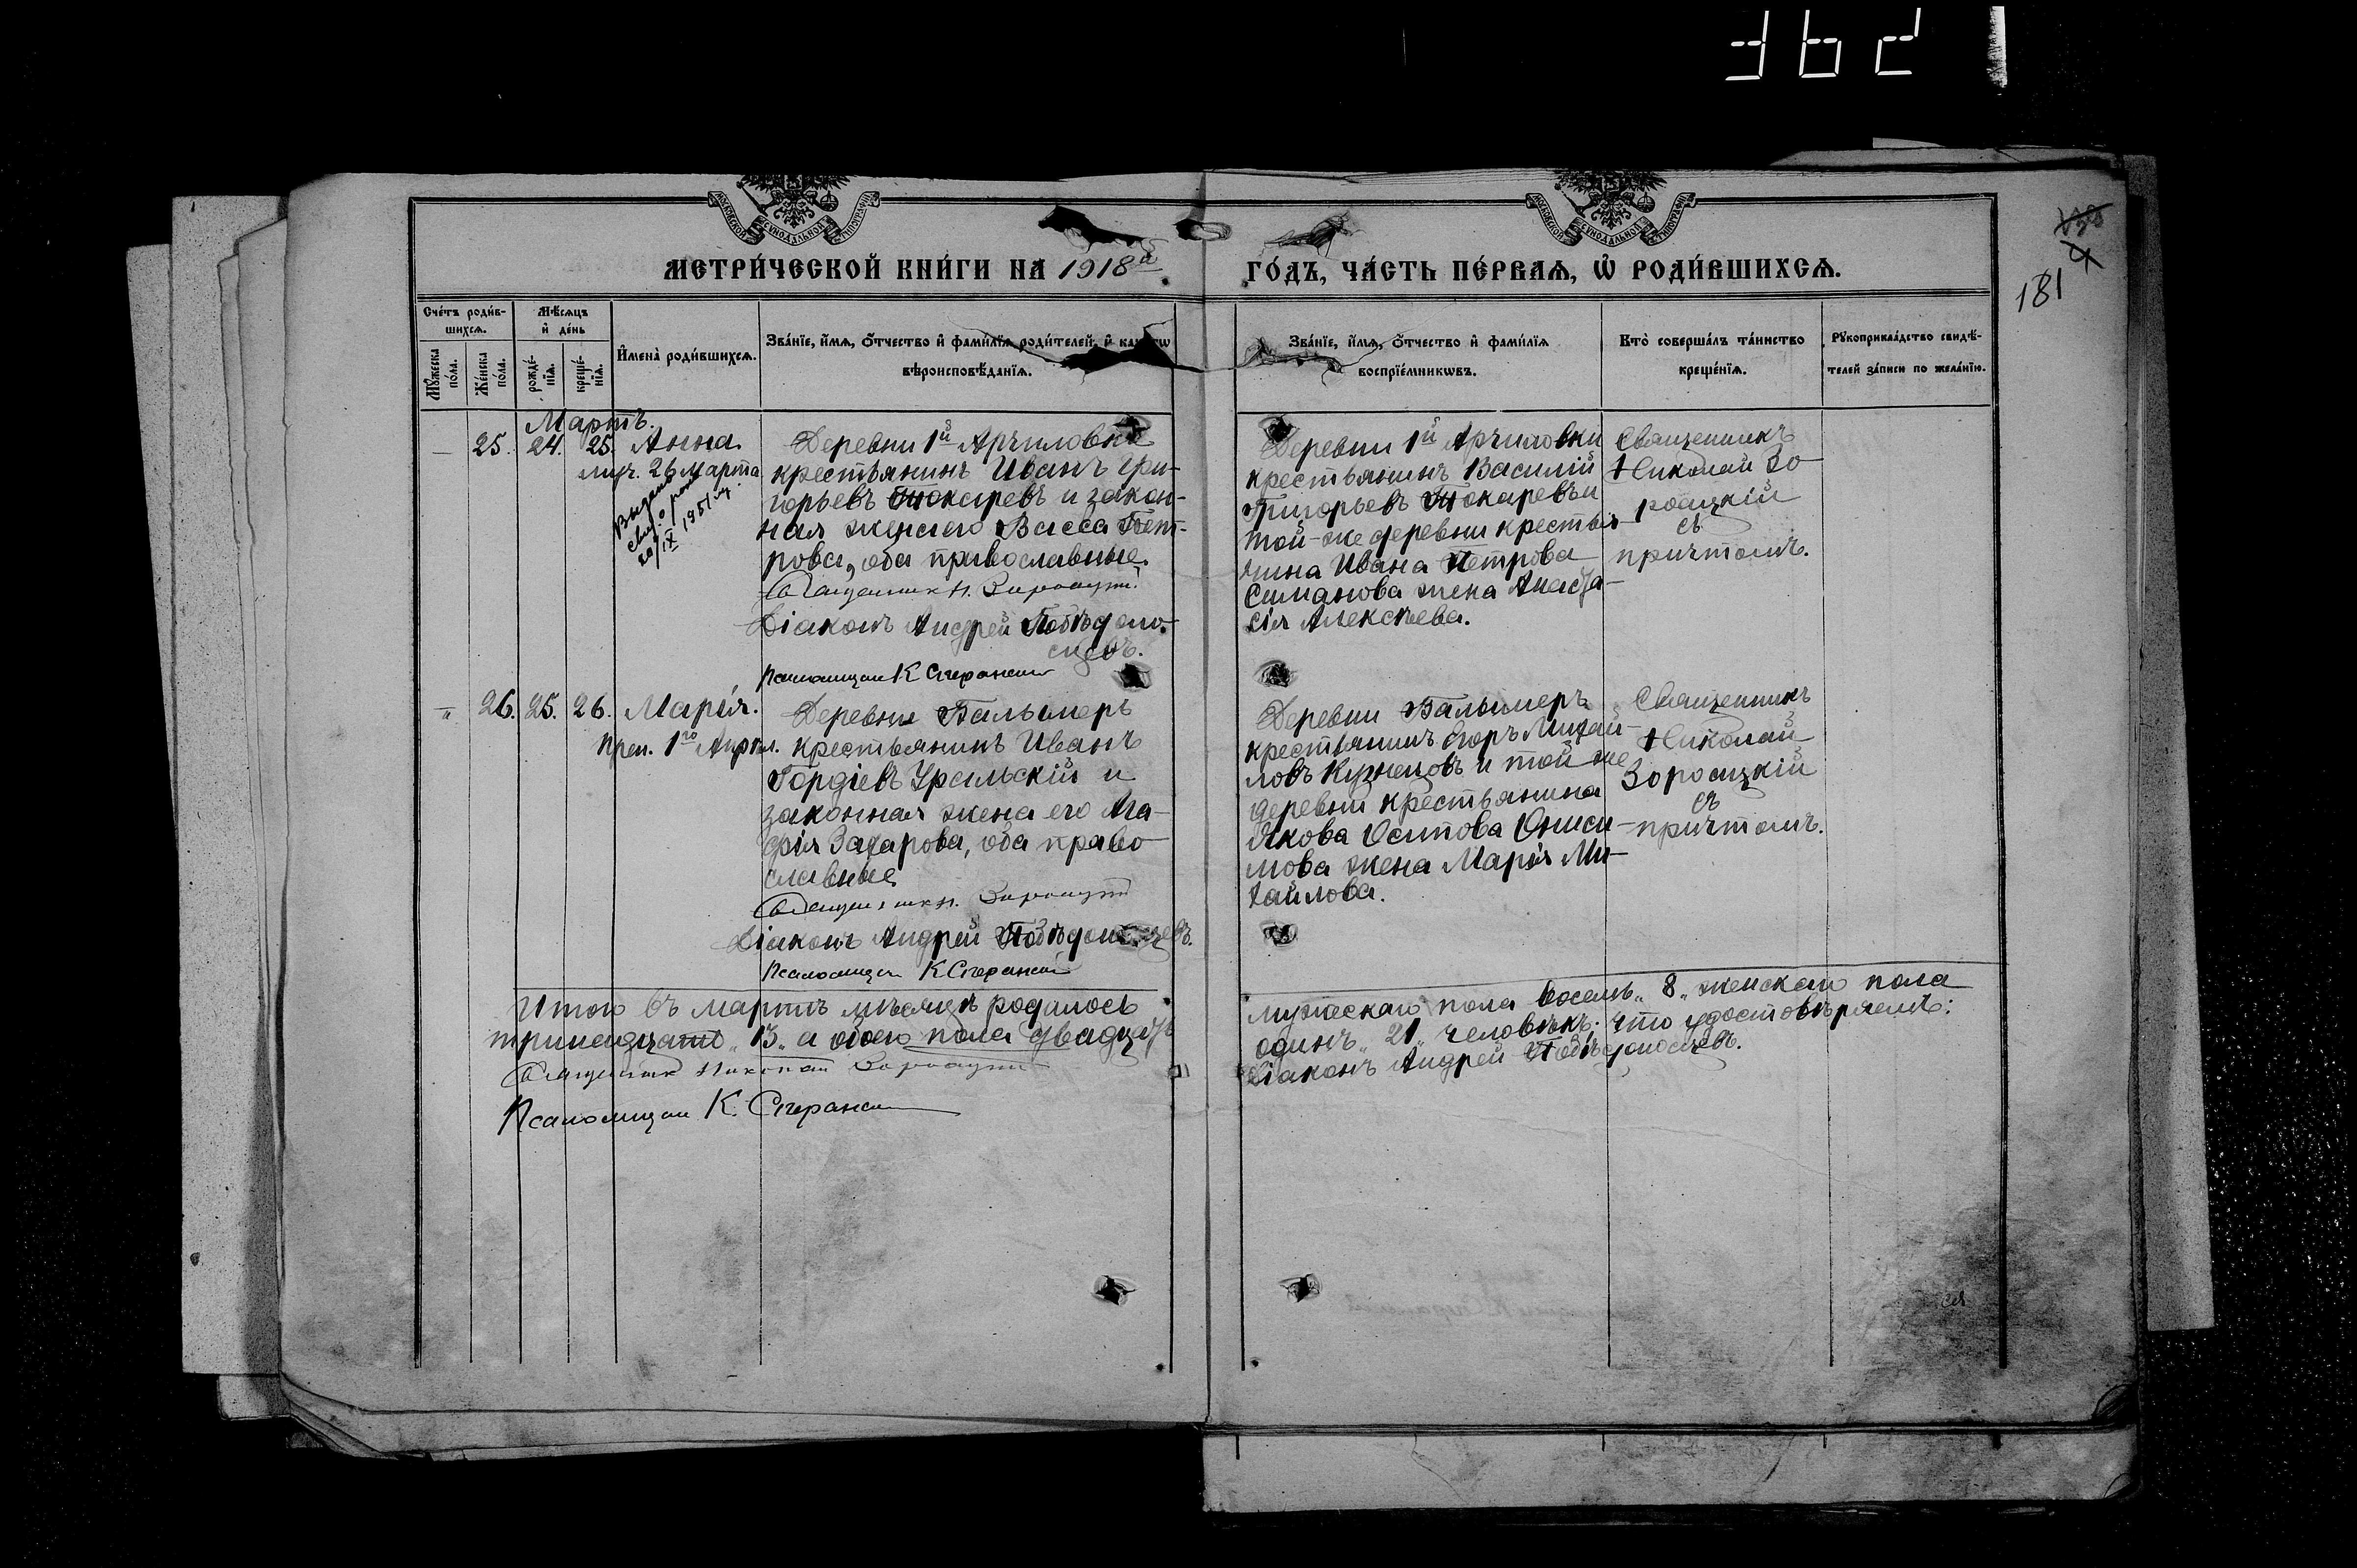 МОСКОВСКОЙ СѴНОДАЛЬНОЙ ТИПОГРАФІИ
МОСКОВСКОЙ СѴНОДАЛЬНОЙ ТИПОГРАФІИ
МЕТРИ́ЧЕСКОЙ КНИ́ГИ НА 1918й
ГО́ДЪ, ЧА́СТЬ ПЕ́РВАѦ, Ѡ҆ РОДИ́ВШИХСѦ.
181
Сче́тъ роди́в-
шихсѧ.
Мꙋ́жеска по́ла.
Же́нска по́ла.
Мѣ́сѧцъ
и҆ де́нь
рожде́-
нїѧ.
креще́-
нїѧ.
И҆мена̀ роди́вшихсѧ.
Зва́нїе, и҆́мѧ, ѻ҆́тчество и҆ фами́лїѧ роди́телей, и҆
вѣроисповѣ́данїѧ.
Зва́нїе, и҆́мѧ, ѻ҆́тчество и҆ фами́лїѧ
воспрїе́мникѡвъ.
Кто̀ соверша́лъ та́инство
креще́нїѧ.
Рꙋкоприкла́дство свидѣ́-
телей за́писи по жела́нїю.
Мартъ.
— 25. 24. 25. Анна
26 Марта
Выдано
20/IX 1951
Деревни 1й Арчиловки
крестьянинъ Иванъ Гри-
горьевъ Токаревъ и закон-
ная жена его Васса Пет-
рова, оба православные.
Священникъ Н. Зороацкій
Діаконъ Андрей Побѣдоно-
сцевъ.
Псаломщик К Сперанский
Деревни 1й Арчиловки
крестьянинъ Василій
Григорьевъ Токаревъ и
той-же деревни крестья-
нина Ивана Петрова
Симанова жена Анаста-
сія Алексѣева.
Священникъ
Николай Зо-
роацкій
съ
причтомъ.
" 26. 25. 26. Марія.
1го Апрѣл.
Деревни Балымеръ
крестьянинъ Иванъ
Гордіевъ Урсильскій и
законная жена его Ага-
фія Захарова, оба право-
славные
Священник Н. Зороацкій
Діаконъ Андрей Побѣдоносцевъ.
Псаломщик К Сперанский
Деревни Балымеръ
крестьянинъ Егоръ Михай-
ловъ Кузнецовъ и той же
деревни крестьянина
Якова Осипова Ониси-
мова жена Марія Ми-
хайлова.
Священникъ
Николай
Зороацкій
съ
причтомъ.
Итого въ мартѣ мѣсяцѣ родилось
мужескаго пола восемь „8„ женскаго пола
тринадцать „13„ а обоего пола двадцать
одинъ „21„ человѣкъ: Что удостовѣряемъ:
Священник Николай Зороацкий
Діаконъ Андрей Побѣдоносцевъ.
Псаломщик К. Сперанский